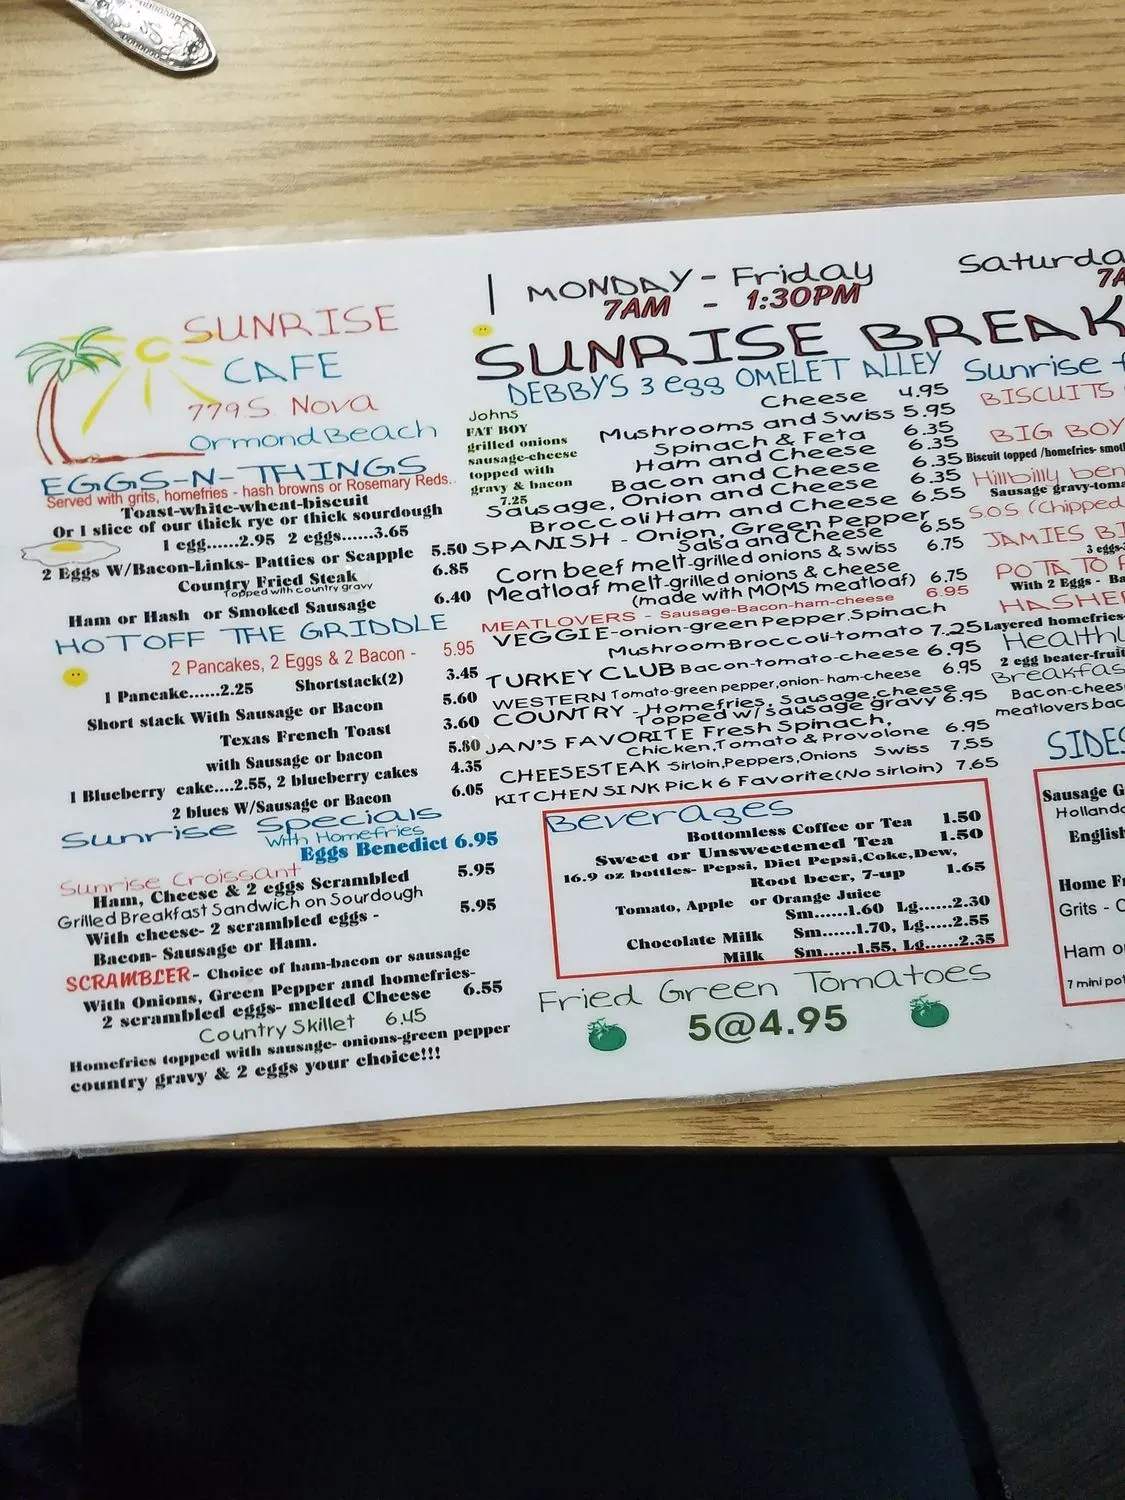 SUNRISE
CAFE
779 S. Nova
Ormond Beach
EGGS-N-THINGS
Served with grits, homefries - hash browns or Rosemary Reds..
Toast-white-wheat-biscuit
Or 1 slice of our thick rye or thick sourdough
1 egg......2.95 2 eggs......3.65
2 Eggs W/Bacon-Links- Patties or Scapple 5.50
Country Fried Steak 6.85
Topped with country gravy
Ham or Hash or Smoked Sausage 6.40
HOT OFF THE GRIDDLE
2 Pancakes, 2 Eggs & 2 Bacon - 5.95
1 Pancake......2.25 Shortstack(2) 3.45
Short stack With Sausage or Bacon 5.60
Texas French Toast 3.60
with Sausage or bacon 5.80
1 Blueberry cake....2.55, 2 blueberry cakes 4.35
2 blues W/Sausage or Bacon 6.05
Sunrise Specials
With Homefries
Eggs Benedict 6.95
Sunrise Croissant
Ham, Cheese & 2 eggs Scrambled 5.95
Grilled Breakfast Sandwich on Sourdough
With cheese- 2 scrambled eggs - 5.95
Bacon- Sausage or Ham.
SCRAMBLER- Choice of ham-bacon or sausage
With Onions, Green Pepper and homefries-
2 scrambled eggs- melted Cheese 6.55
Country Skillet 6.45
Homefries topped with sausage- onions-green pepper
country gravy & 2 eggs your choice!!!
MONDAY - Friday
7AM - 1:30PM
SUNRISE
DEBBY'S 3 egg OMELET ALLEY
Johns
FAT BOY
grilled onions
sausage-cheese
topped with
gravy & bacon
7.25
Cheese 4.95
Mushrooms and Swiss 5.95
Spinach & Feta 6.35
Ham and Cheese 6.35
Bacon and Cheese 6.35
Sausage, Onion and Cheese 6.35
Broccoli Ham and Cheese 6.55
SPANISH - Onion, Green Pepper
Salsa and Cheese 6.55
Corn beef melt-grilled onions & swiss 6.75
Meatloaf melt-grilled onions & cheese
(made with MOMS meatloaf) 6.75
MEATLOVERS - Sausage-Bacon-ham-cheese 6.95
VEGGIE-onion-green Pepper, Spinach
Mushroom Broccoli-tomato 7.25
TURKEY CLUB Bacon-tomato-cheese 6.95
WESTERN Tomato-green pepper,onion-ham-cheese 6.95
COUNTRY - Homefries, Sausage,cheese
Topped w/ sausage gravy 6.95
JAN'S FAVORITE Fresh Spinach,
Chicken,Tomato & Provolone 6.95
CHEESESTEAK Sirloin,Peppers,Onions Swiss 7.55
KITCHEN SINK Pick 6 Favorite(No sirloin) 7.65
Beverages
Bottomless Coffee or Tea 1.50
Sweet or Unsweetened Tea 1.50
16.9 oz bottles- Pepsi, Diet Pepsi,Coke,Dew,
Root beer, 7-up 1.65
Tomato, Apple or Orange Juice
Sm......1.60 Lg......2.30
Chocolate Milk Sm......1.70, Lg......2.55
Milk Sm......1.55, Lg......2.35
Fried Green Tomatoes
5@4.95
Sunrise
BISCUITS
BIG BOY
Biscuit topped /homefries-
Hillbilly
Sausage gravy-
S.O.S (Chipped
JAMIES
3 eggs-
With 2 Eggs -
Layered homefries-
2 egg beater-
Bacon-
meatlovers
Sausage
Home
Grits -
Ham
7 mini